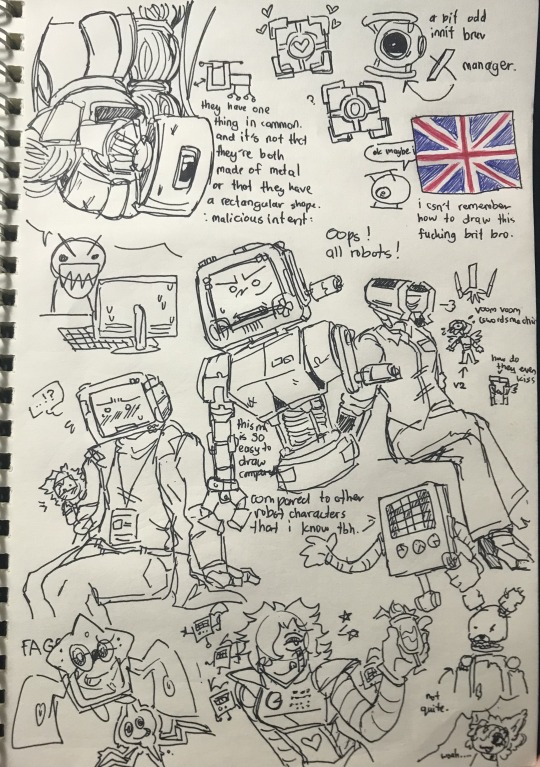 a bit odd
innit brev
manager.
?
they have one
thing in common.
and it's not that
they're both
made of metal
or that they have
a rectangular shape.
: malicious intent:
ok maybe
i csn't remember
how to draw this
fucking brit bro.
Oops!
all robots!
:3
voom voom
V2
how do
they even
kiss
...!?
this mf
is so
easy to
draw
compared
compared to other
robot characters
that i know tbh.
FAG
not
quite.
woah....